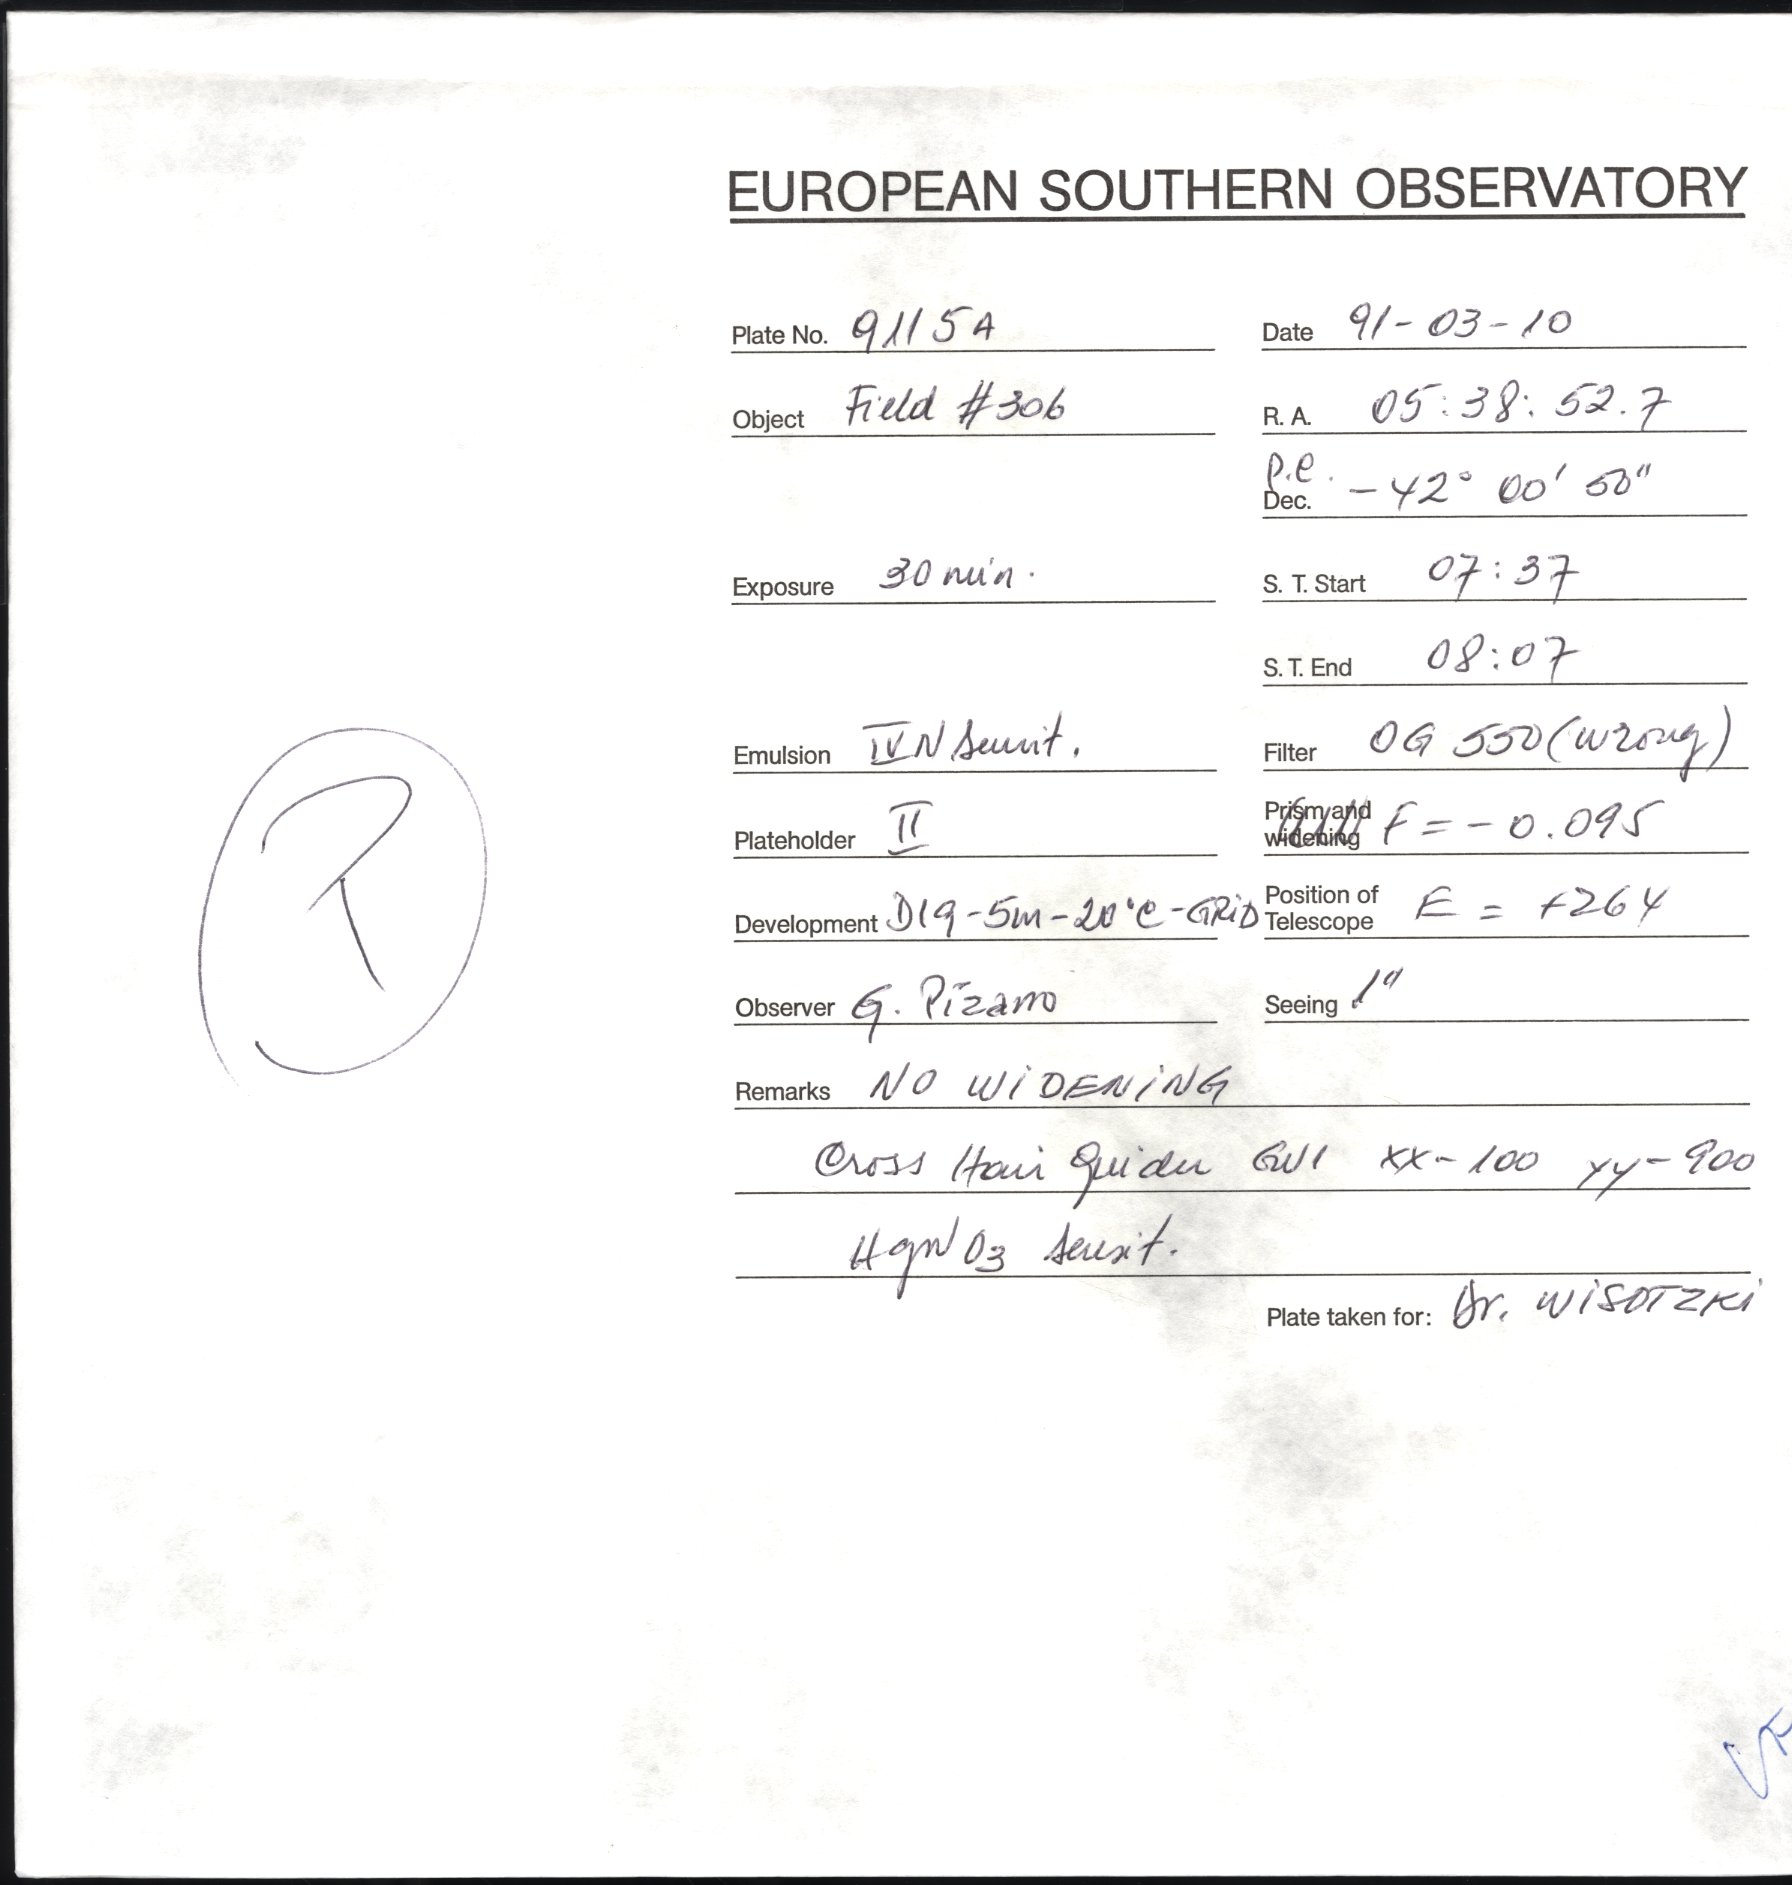 EUROPEAN SOUTHERN OBSERVATORY
Plate No. 9115A Date 91-03-10
Object Field #306 R. A. 05:38:52.7
p.e.
Dec. -42° 00' 50"
Exposure 30 min. S. T. Start 07:37
S. T. End 08:07
Emulsion IVN Sensit. Filter OG 550 (wrong)
Plateholder II Prism and widening F = -0.095
Development D19-5m-20°C-GRiD Position of Telescope E = +264
Observer G. Pizarro Seeing 1"
Remarks NO WiDENiNG
Cross Hair Guider xx-100 yy-900
HgNO3 Sensit.
Plate taken for: Dr. WiSOTZKi